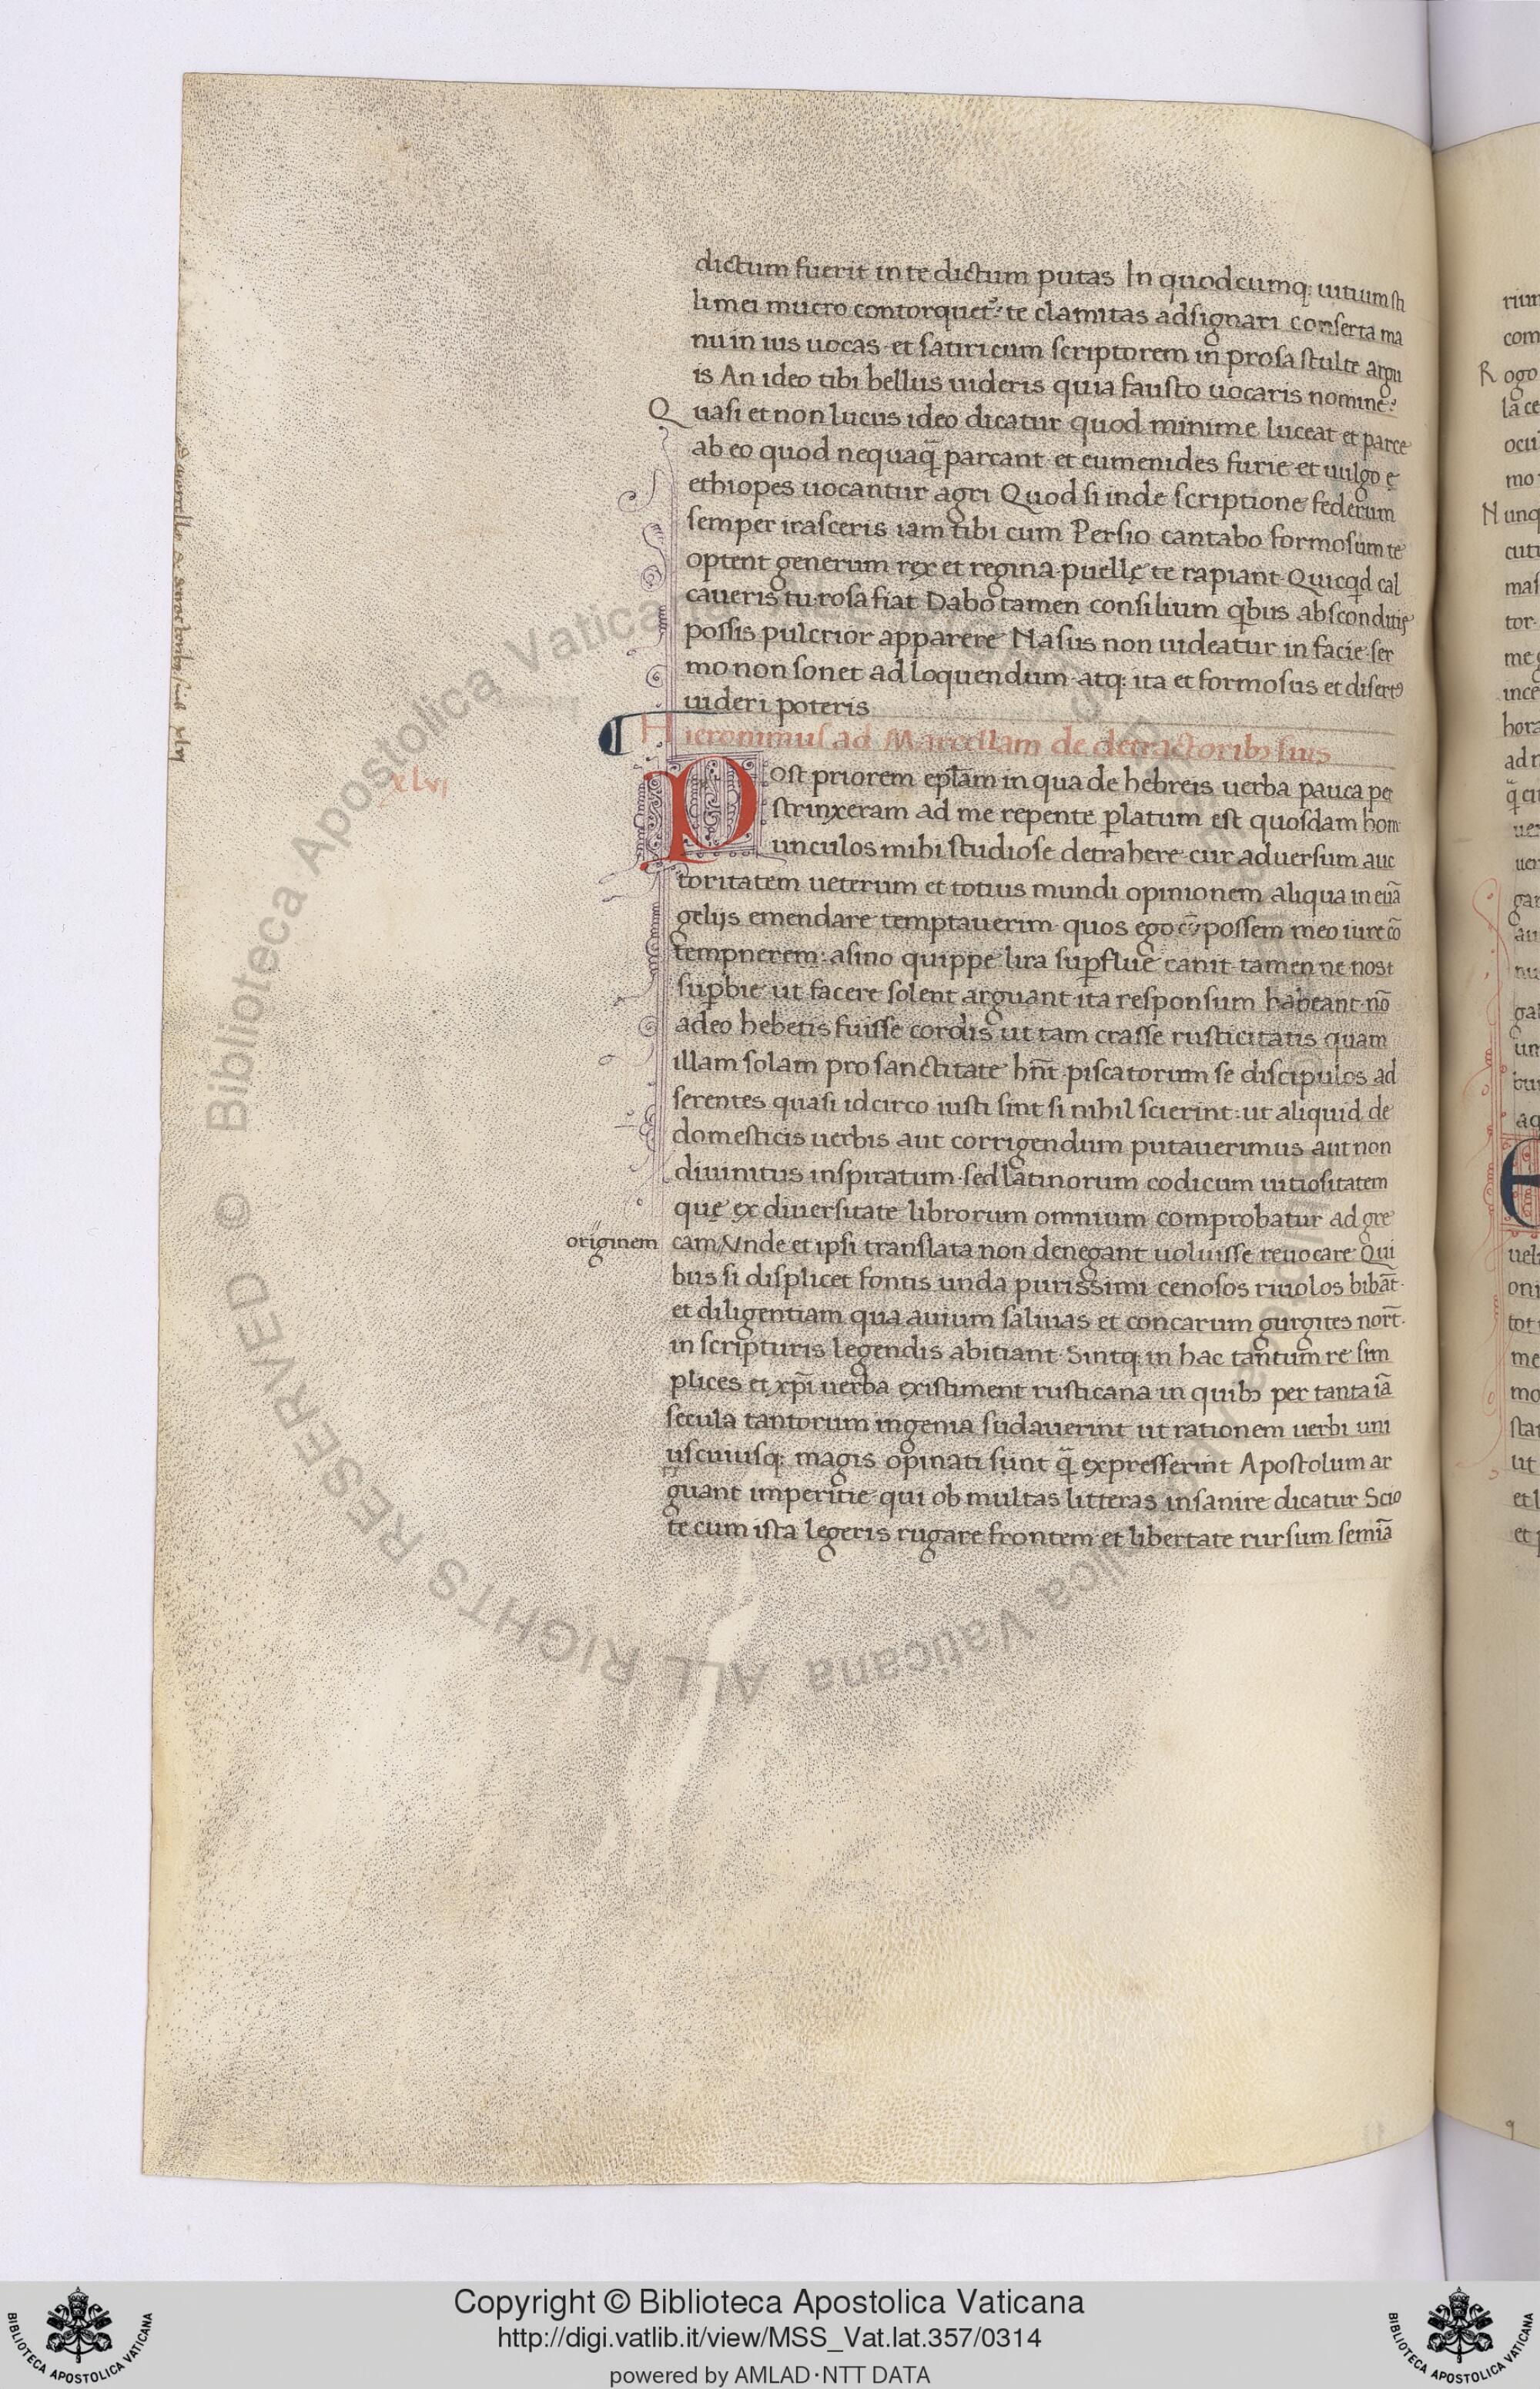 dictum fuerit in te dictum putas In quodcumq: uitium sti
li mei mucro contorquet᷑: te clamitas adsignari conserta ma
nu in ius uocas et satiricum scriptorem in prosa stulte argu
is An ideo tibi bellus uideris quia fausto uocaris nomine?
Quasi et non lucus ideo dicatur quod minime luceat et parce
ab eo quod nequaq̄ parcant et eumenides furie et uulgo ę
ethiopes uocantur agri Quod si inde scriptione federum
semper irasceris iam tibi cum Persio cantabo formosum te
optent generum rex et regina puellę te rapiant Quicqd cal
caueris tu rosa fiat Dabo tamen consilium qbus absconditis
possis pulcrior apparere Nasus non uideatur in facie ser
mo non sonet ad loquendum atq: ita et formosus et disertꝰ
uideri poteris
Hieronimus ad Marcellam de detractoribꝫ suis
xlvi
Post priorem epl̄am in qua de hebreis uerba pauca per
strinxeram ad me repente ꝑlatum est quosdam hom
unculos mihi studiose detrahere cur aduersum auc
toritatem ueterum et totius mundi opinionem aliqua in euā
gelijs emendare temptauerim quos ego cū possem meo iure cō
tempnerem: asino quippe lira suꝑflue canit tamen ne nost
suꝑbie ut facere solent arguant ita responsum habeant nō
adeo hebetis fuisse cordis ut tam crasse rusticitatis quam
illam solam pro sanctitate hn̄t piscatorum se discipulos ad
serentes quasi idcirco iusti sint si nihil scierint: ut aliquid de
domesticis uerbis aut corrigendum putauerimus aut non
diuinitus inspiratum sed latinorum codicum uitiositatem
quę ex diuersitate librorum omnium comprobatur ad gre
originem
cam Vnde et ipsi translata non denegant uoluisse reuocare Qui
bus si displicet fontis unda purissimi cenosos riuolos bibāt
et diligentiam qua auium saluias et concarum gurgites nort̄
in scripturis legendis abitiant Sintq: in hac tantum re sim
plices et xp̄i uerba existiment rusticana in quibꝫ per tanta iā
secula tantorum ingenia sudauerint ut rationem uerbi uni
uscuiusq: magis opinati sunt q̄ expresserint Apostolum ar
guant imperitie qui ob multas litteras insanire dicatur Scio
te cum ista legeris rugare frontem et libertate rursum semīa
Biblioteca Apostolica Vaticana ALL RIGHTS RESERVED ©
Copyright © Biblioteca Apostolica Vaticana
http://digi.vatlib.it/view/MSS_Vat.lat.357/0314
powered by AMLAD·NTT DATA
BIBLIOTECA APOSTOLICA VATICANA
BIBLIOTECA APOSTOLICA VATICANA